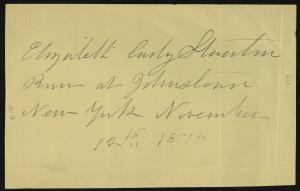 Elizabeth Cady Stanton
Born at Johnstown
New York November
12th 181